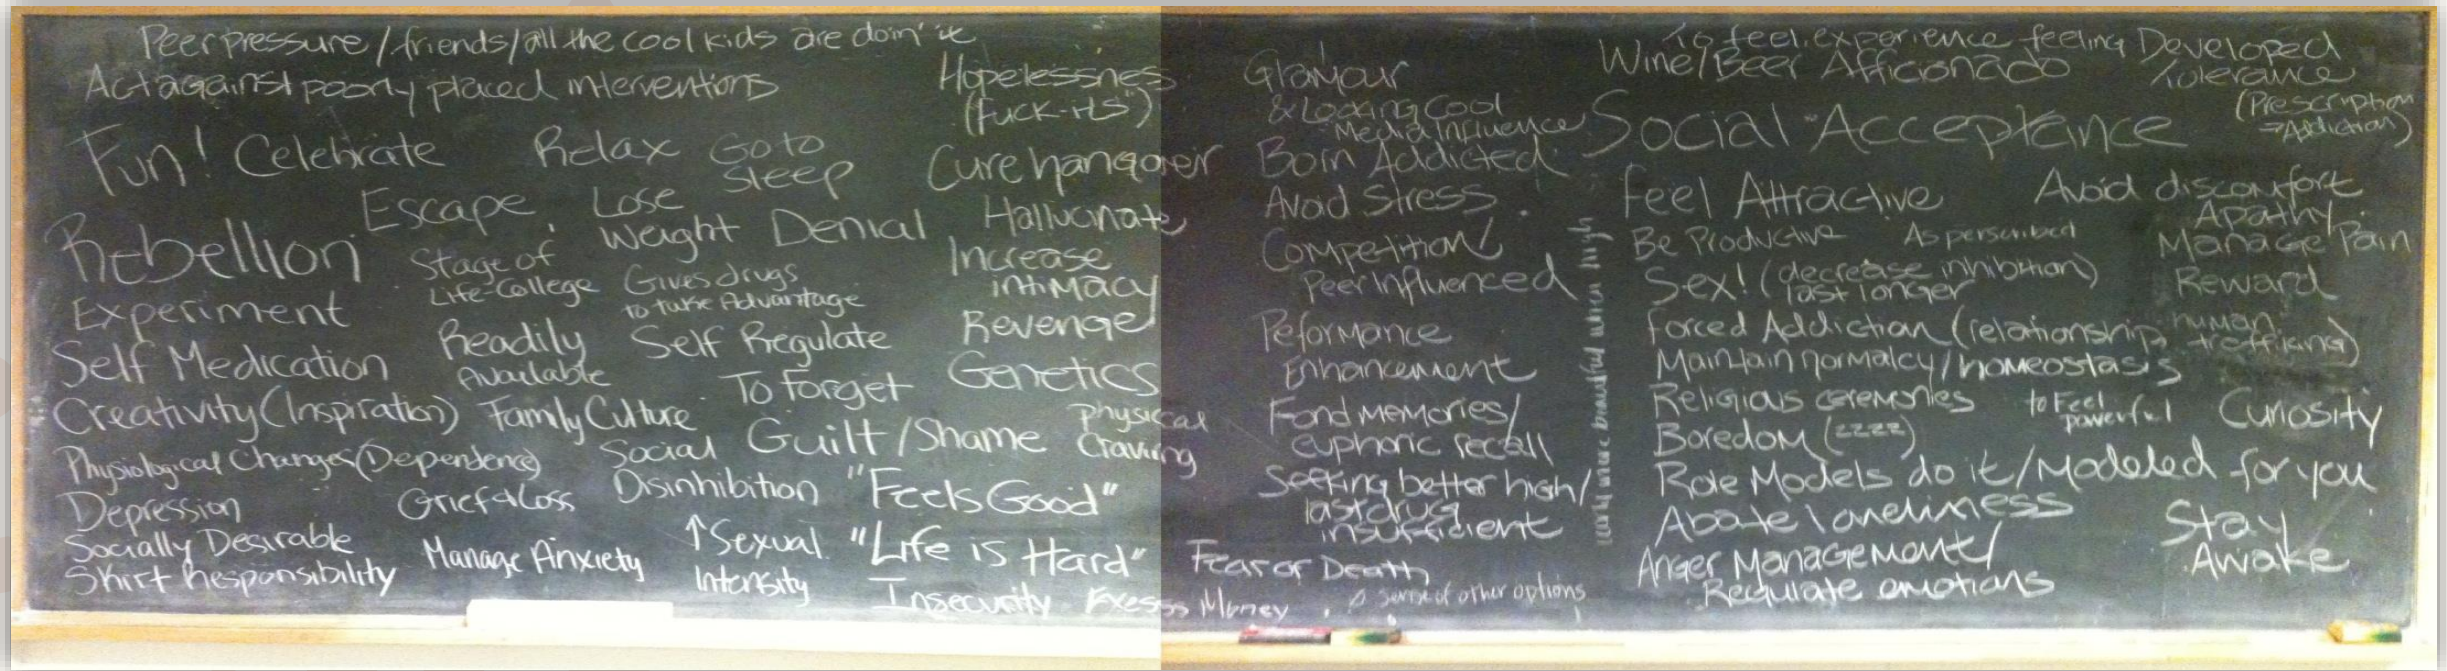 Peer pressure / friends / all the cool kids are doin' it
Act against poorly placed interventions
Hopelessness
(Fuck-its")
Fun! Celebrate
Relax
Go to
Sleep
Cure hangover
Escape
Lose
Weight
Denial
Hallucinate
Rebellion
Stage of
Life-College
Gives drugs
to take Advantage
Increase
intimacy
Experiment
Readily
Available
Self Regulate
Revenge
Self Medication
To Forget
Genetics
Creativity (Inspiration)
Family Culture
Physical
Craving
Physiological Changes (Dependence)
Social
Disinhibition
Guilt/Shame
Depression
Grief & Loss
"Feels Good"
Socially Desirable
Skirt Responsibility
Manage Anxiety
↑Sexual
Intensity
"Life is Hard"
Insecurity
Exess Money
Glamour
& Looking Cool
Media Influence
Born Addicted
Avoid Stress
Competition
Peer Influenced
Peformance
Enhancement
Fond memories/
euphoric recall
Seeking better high/
last drug
insufficient
Fear of Death
Ø sense of other options
more beautiful when high
To feel, experience feeling
Wine/Beer Afficionado
Developed
Tolerance
(Prescription
→Addiction)
Social Acceptance
Feel Attractive
Avoid discomfort
Apathy
Be Productive
As perscribed
Manage Pain
Sex! (decrease inhibition)
last longer
Reward
Forced Addiction (relationship, human
trafficking)
Maintain normalcy/homeostasis
Religious ceremonies
to Feel
powerful
Curiosity
Boredom (zzzz)
Role Models do it/Modeled for you
Abate loneliness
Stay
Awake
Anger Management/
Regulate emotions